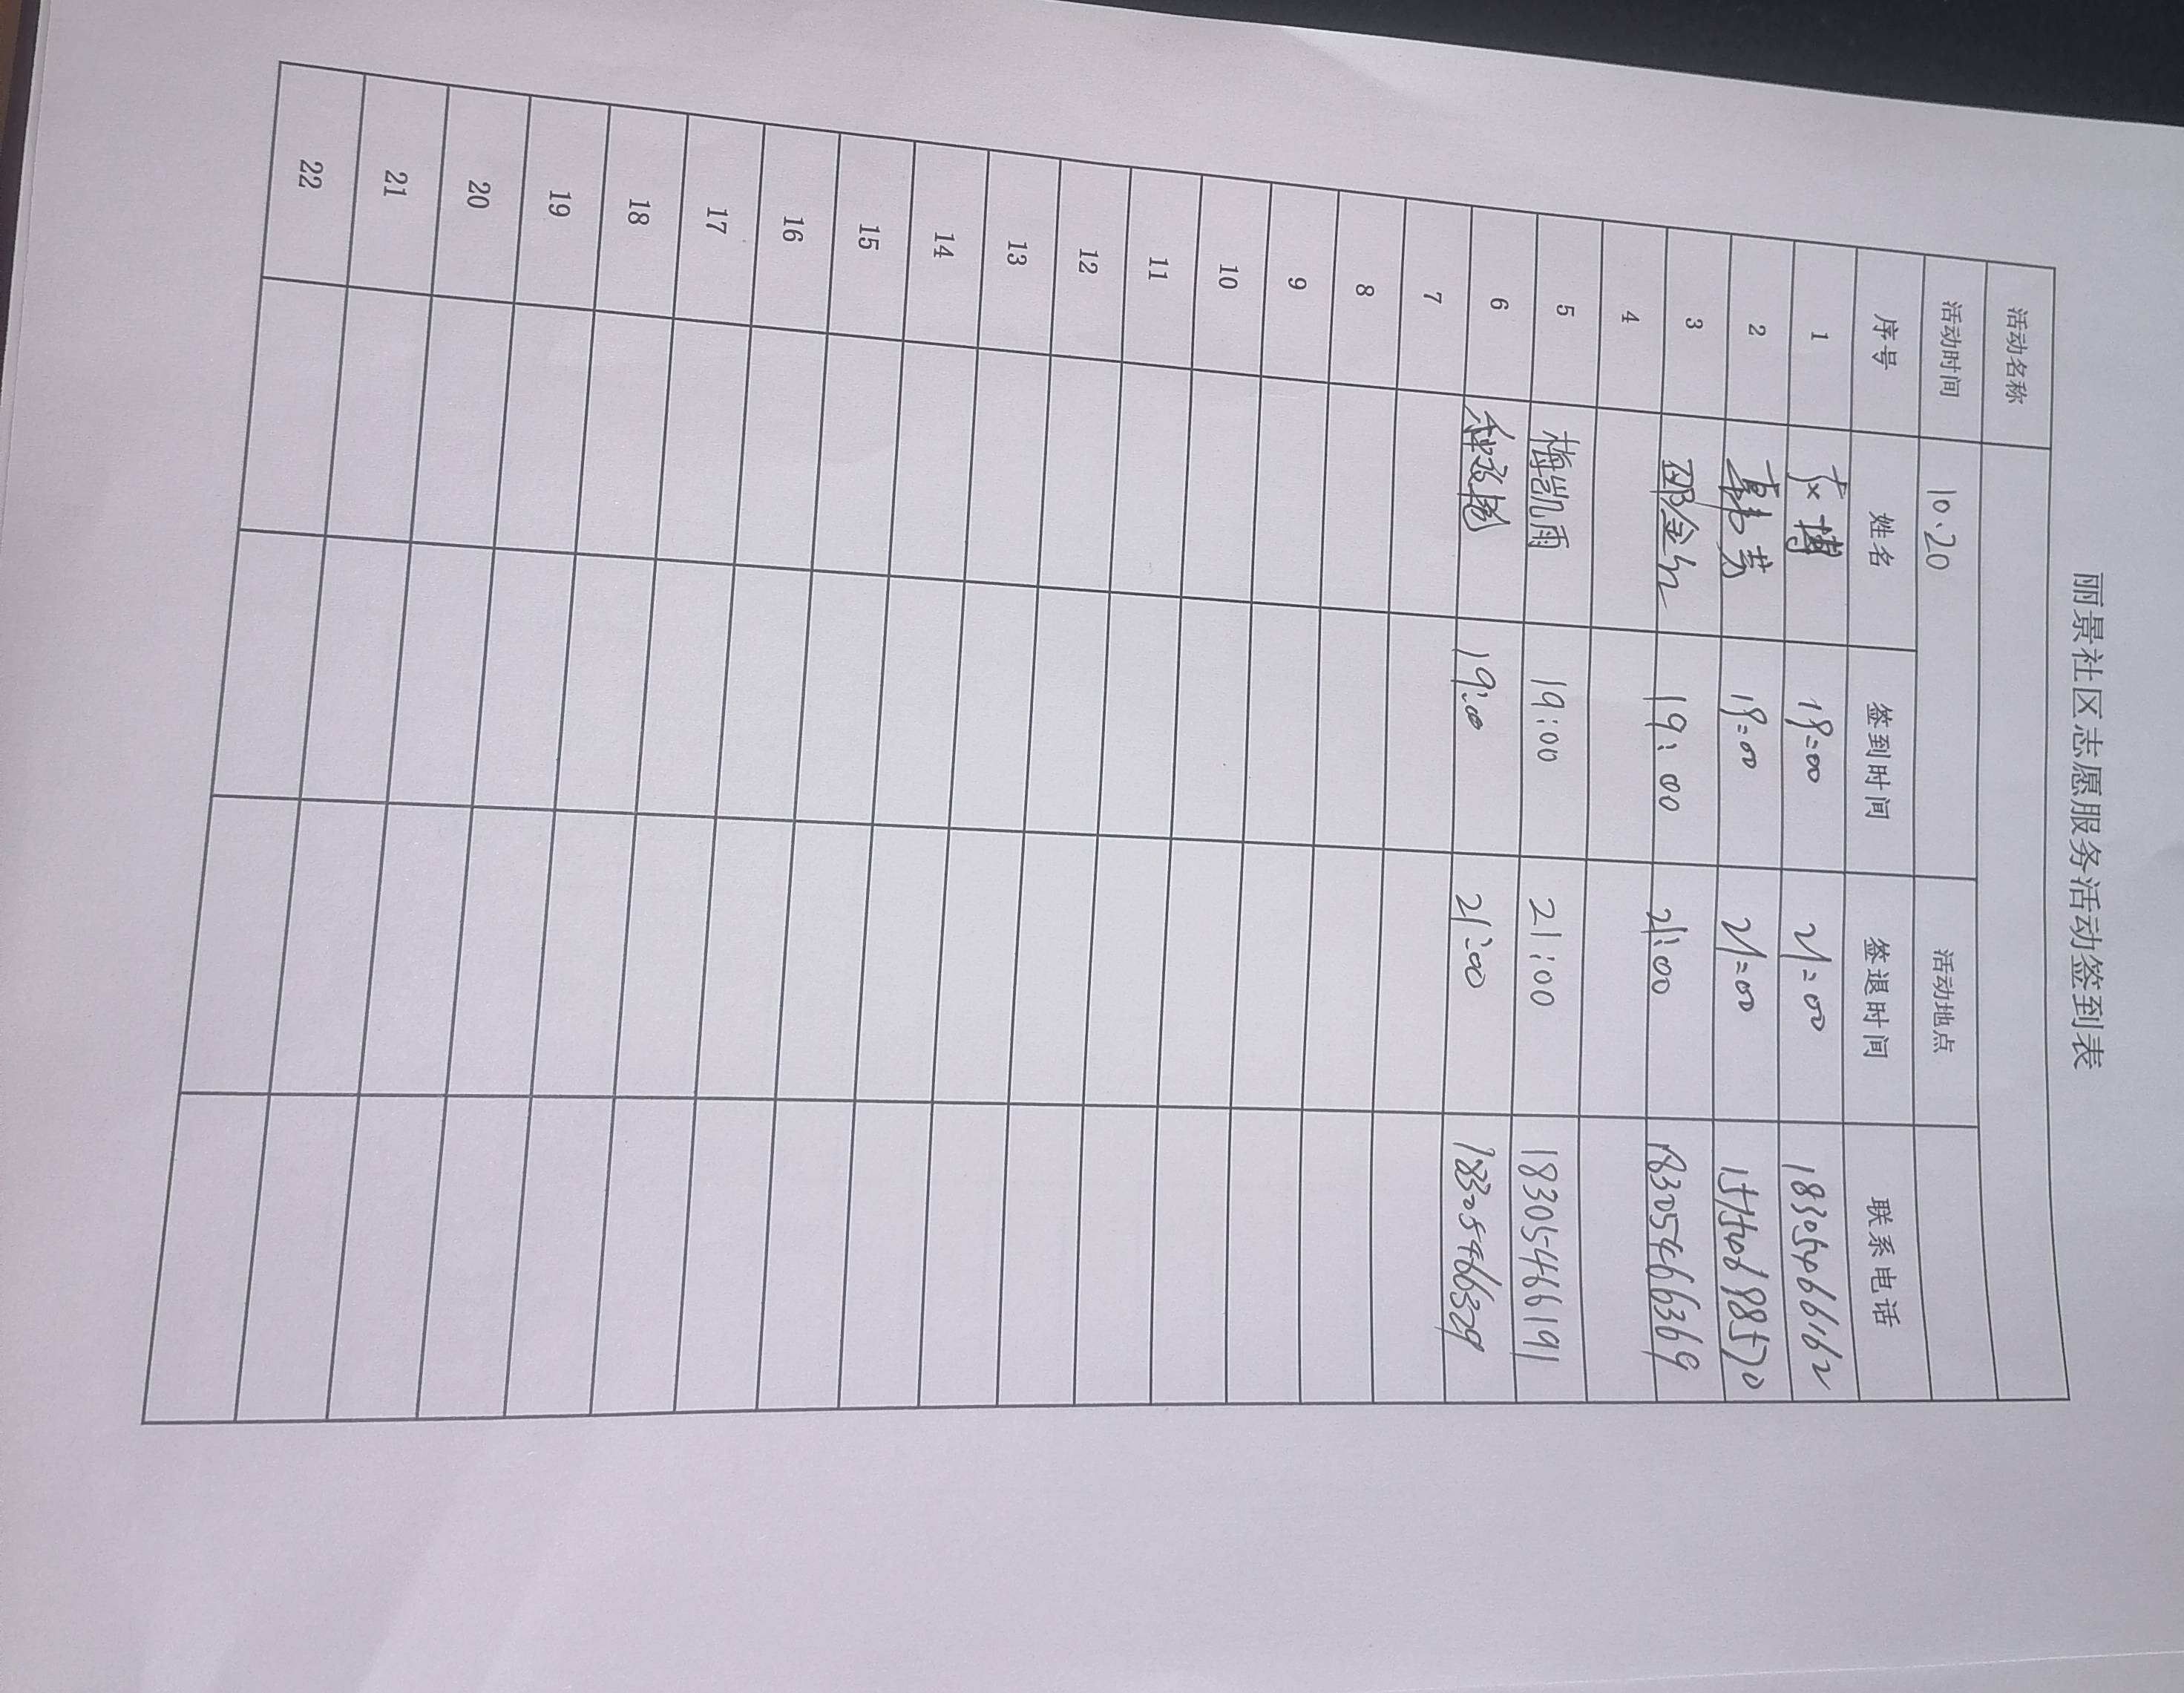 丽景社区志愿服务活动签到表
活动名称
活动时间 10.20 活动地点
序号 姓名 签到时间 签退时间 联系电话
1 博 19:00 21:00 18305466162
2 韩芸 19:00 21:00
3 邵金 19:00 21:00 18305466369
4
5 梅凯雨 19:00 21:00 18305466191
6 19:00 21:00 18305466329
7
8
9
10
11
12
13
14
15
16
17
18
19
20
21
22